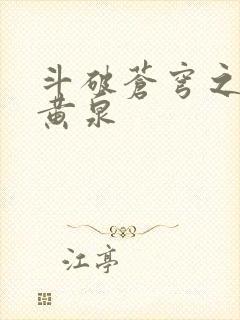 斗破苍穹之
黄泉
江亭